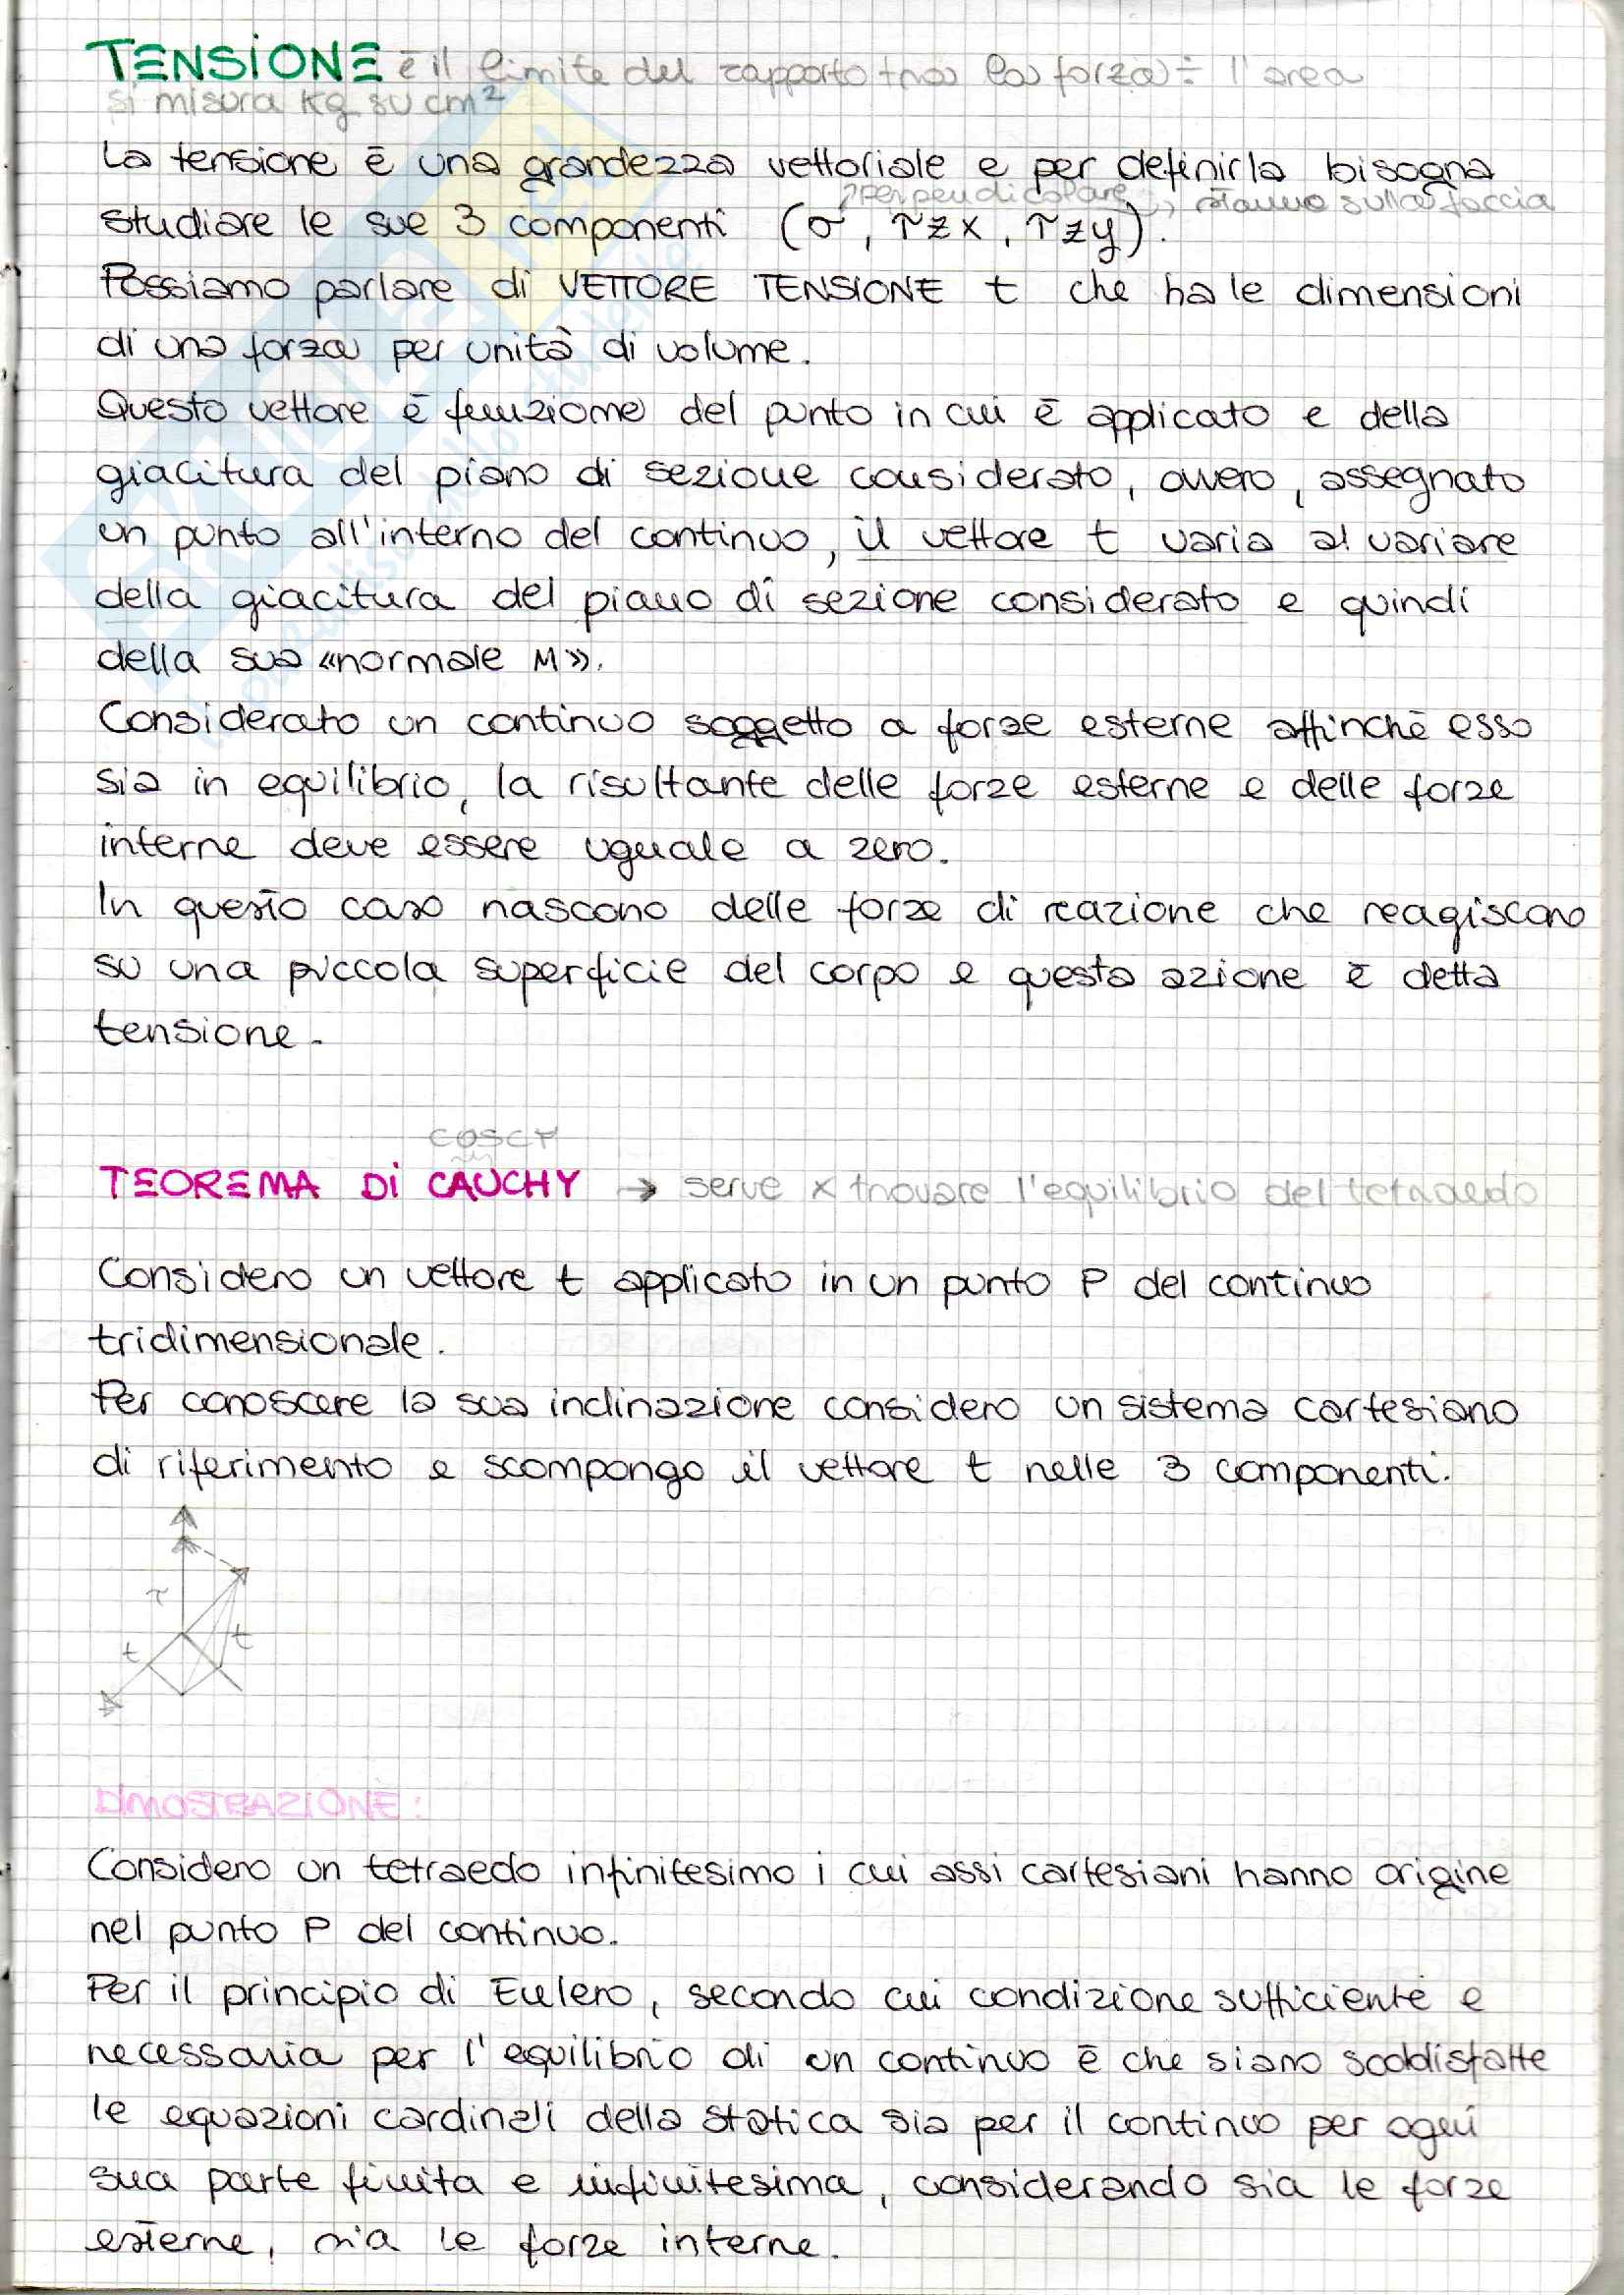 TENSIONE è il limite del rapporto tra la forza ÷ l'area
si misura kg su cm²
La tensione è una grandezza vettoriale e per definirla bisogna
↗perpendicolare stanno sulla faccia
studiare le sue 3 componenti (σ, τzx, τzy).
Possiamo parlare di VETTORE TENSIONE t che ha le dimensioni
di una forza per unità di volume.
Questo vettore è funzione del punto in cui è applicato e della
giacitura del piano di sezione considerato, ovvero, assegnato
un punto all'interno del continuo, il vettore t varia al variare
della giacitura del piano di sezione considerato e quindi
della sua «normale M».
Considerato un continuo soggetto a forze esterne affinchè esso
sia in equilibrio, la risultante delle forze esterne e delle forze
interne deve essere uguale a zero.
In questo caso nascono delle forze di reazione che reagiscono
su una piccola superficie del corpo e questa azione è detta
tensione.
COSCY
TEOREMA Di CAUCHY → serve x trovare l'equilibrio del tetraedo
Considero un vettore t applicato in un punto P del continuo
tridimensionale.
Per conoscere la sua inclinazione considero un sistema cartesiano
di riferimento e scompongo il vettore t nelle 3 componenti.
τ
t t
DIMOSTRAZIONE:
Considero un tetraedo infinitesimo i cui assi cartesiani hanno origine
nel punto P del continuo.
Per il principio di Eulero, secondo cui condizione sufficiente e
necessaria per l'equilibrio di un continuo è che siano soddisfatte
le equazioni cardinali della statica sia per il continuo per ogni
sua parte finita e infinitesima, considerando sia le forze
esterne, sia le forze interne.